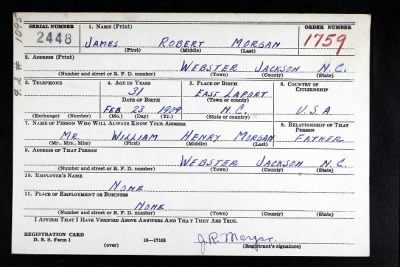 SERIAL NUMBER 1. NAME (Print) ORDER NUMBER
2448 JAMES ROBERT MORGAN 1759
(First) (Middle) (Last)
2. ADDRESS (Print)
WEBSTER JACKSON N.C.
(Number and street or R. F. D. number) (Town) (County) (State)
3. TELEPHONE 4. AGE IN YEARS 5. PLACE OF BIRTH 6. COUNTRY OF CITIZENSHIP
31 EAST LAPORT
DATE OF BIRTH (Town or county)
FEB 23 1909 N.C. U.S.A
(Exchange) (Number) (Mo.) (Day) (Yr.) (State or country)
7. NAME OF PERSON WHO WILL ALWAYS KNOW YOUR ADDRESS 8. RELATIONSHIP OF THAT PERSON
MR. WILLIAM HENRY MORGAN FATHER
(Mr., Mrs., Miss) (First) (Middle) (Last)
9. ADDRESS OF THAT PERSON
WEBSTER JACKSON N.C.
(Number and street or R. F. D. number) (Town) (County) (State)
10. EMPLOYER'S NAME
NONE
11. PLACE OF EMPLOYMENT OR BUSINESS
NONE
(Number and street or R. F. D. number) (Town) (County) (State)
I AFFIRM THAT I HAVE VERIFIED ABOVE ANSWERS AND THAT THEY ARE TRUE.
REGISTRATION CARD
D. S. S. Form 1 (over) 16—17105 J.R. Morgan
(Registrant's signature)